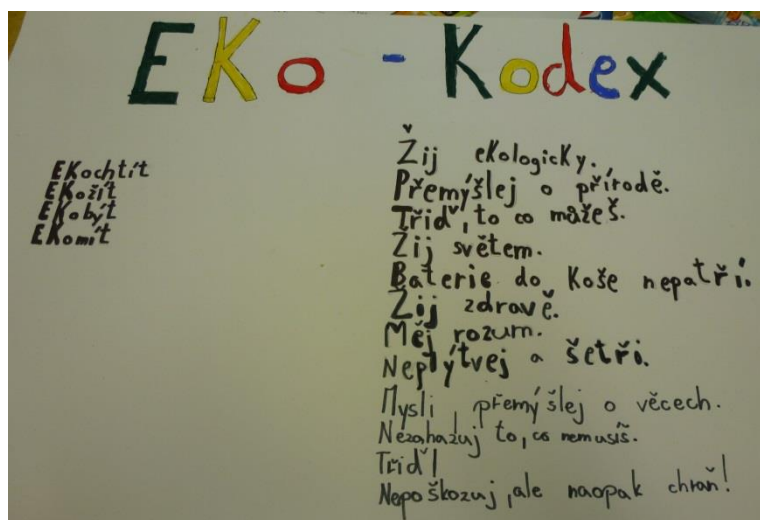 EKo - Kodex
EKochtít
EKožít
EKobýt
EKomít
Žij ekologicky.
Přemýšlej o přírodě.
Třiď, to co můžeš.
Žij světem.
Baterie do koše nepatří.
Žij zdravě.
Měj rozum.
Neplýtvej a šetři.
Mysli, přemýšlej o věcech.
Nezahazuj to, co nemusíš.
Třiď!
Nepoškozuj, ale naopak chraň!